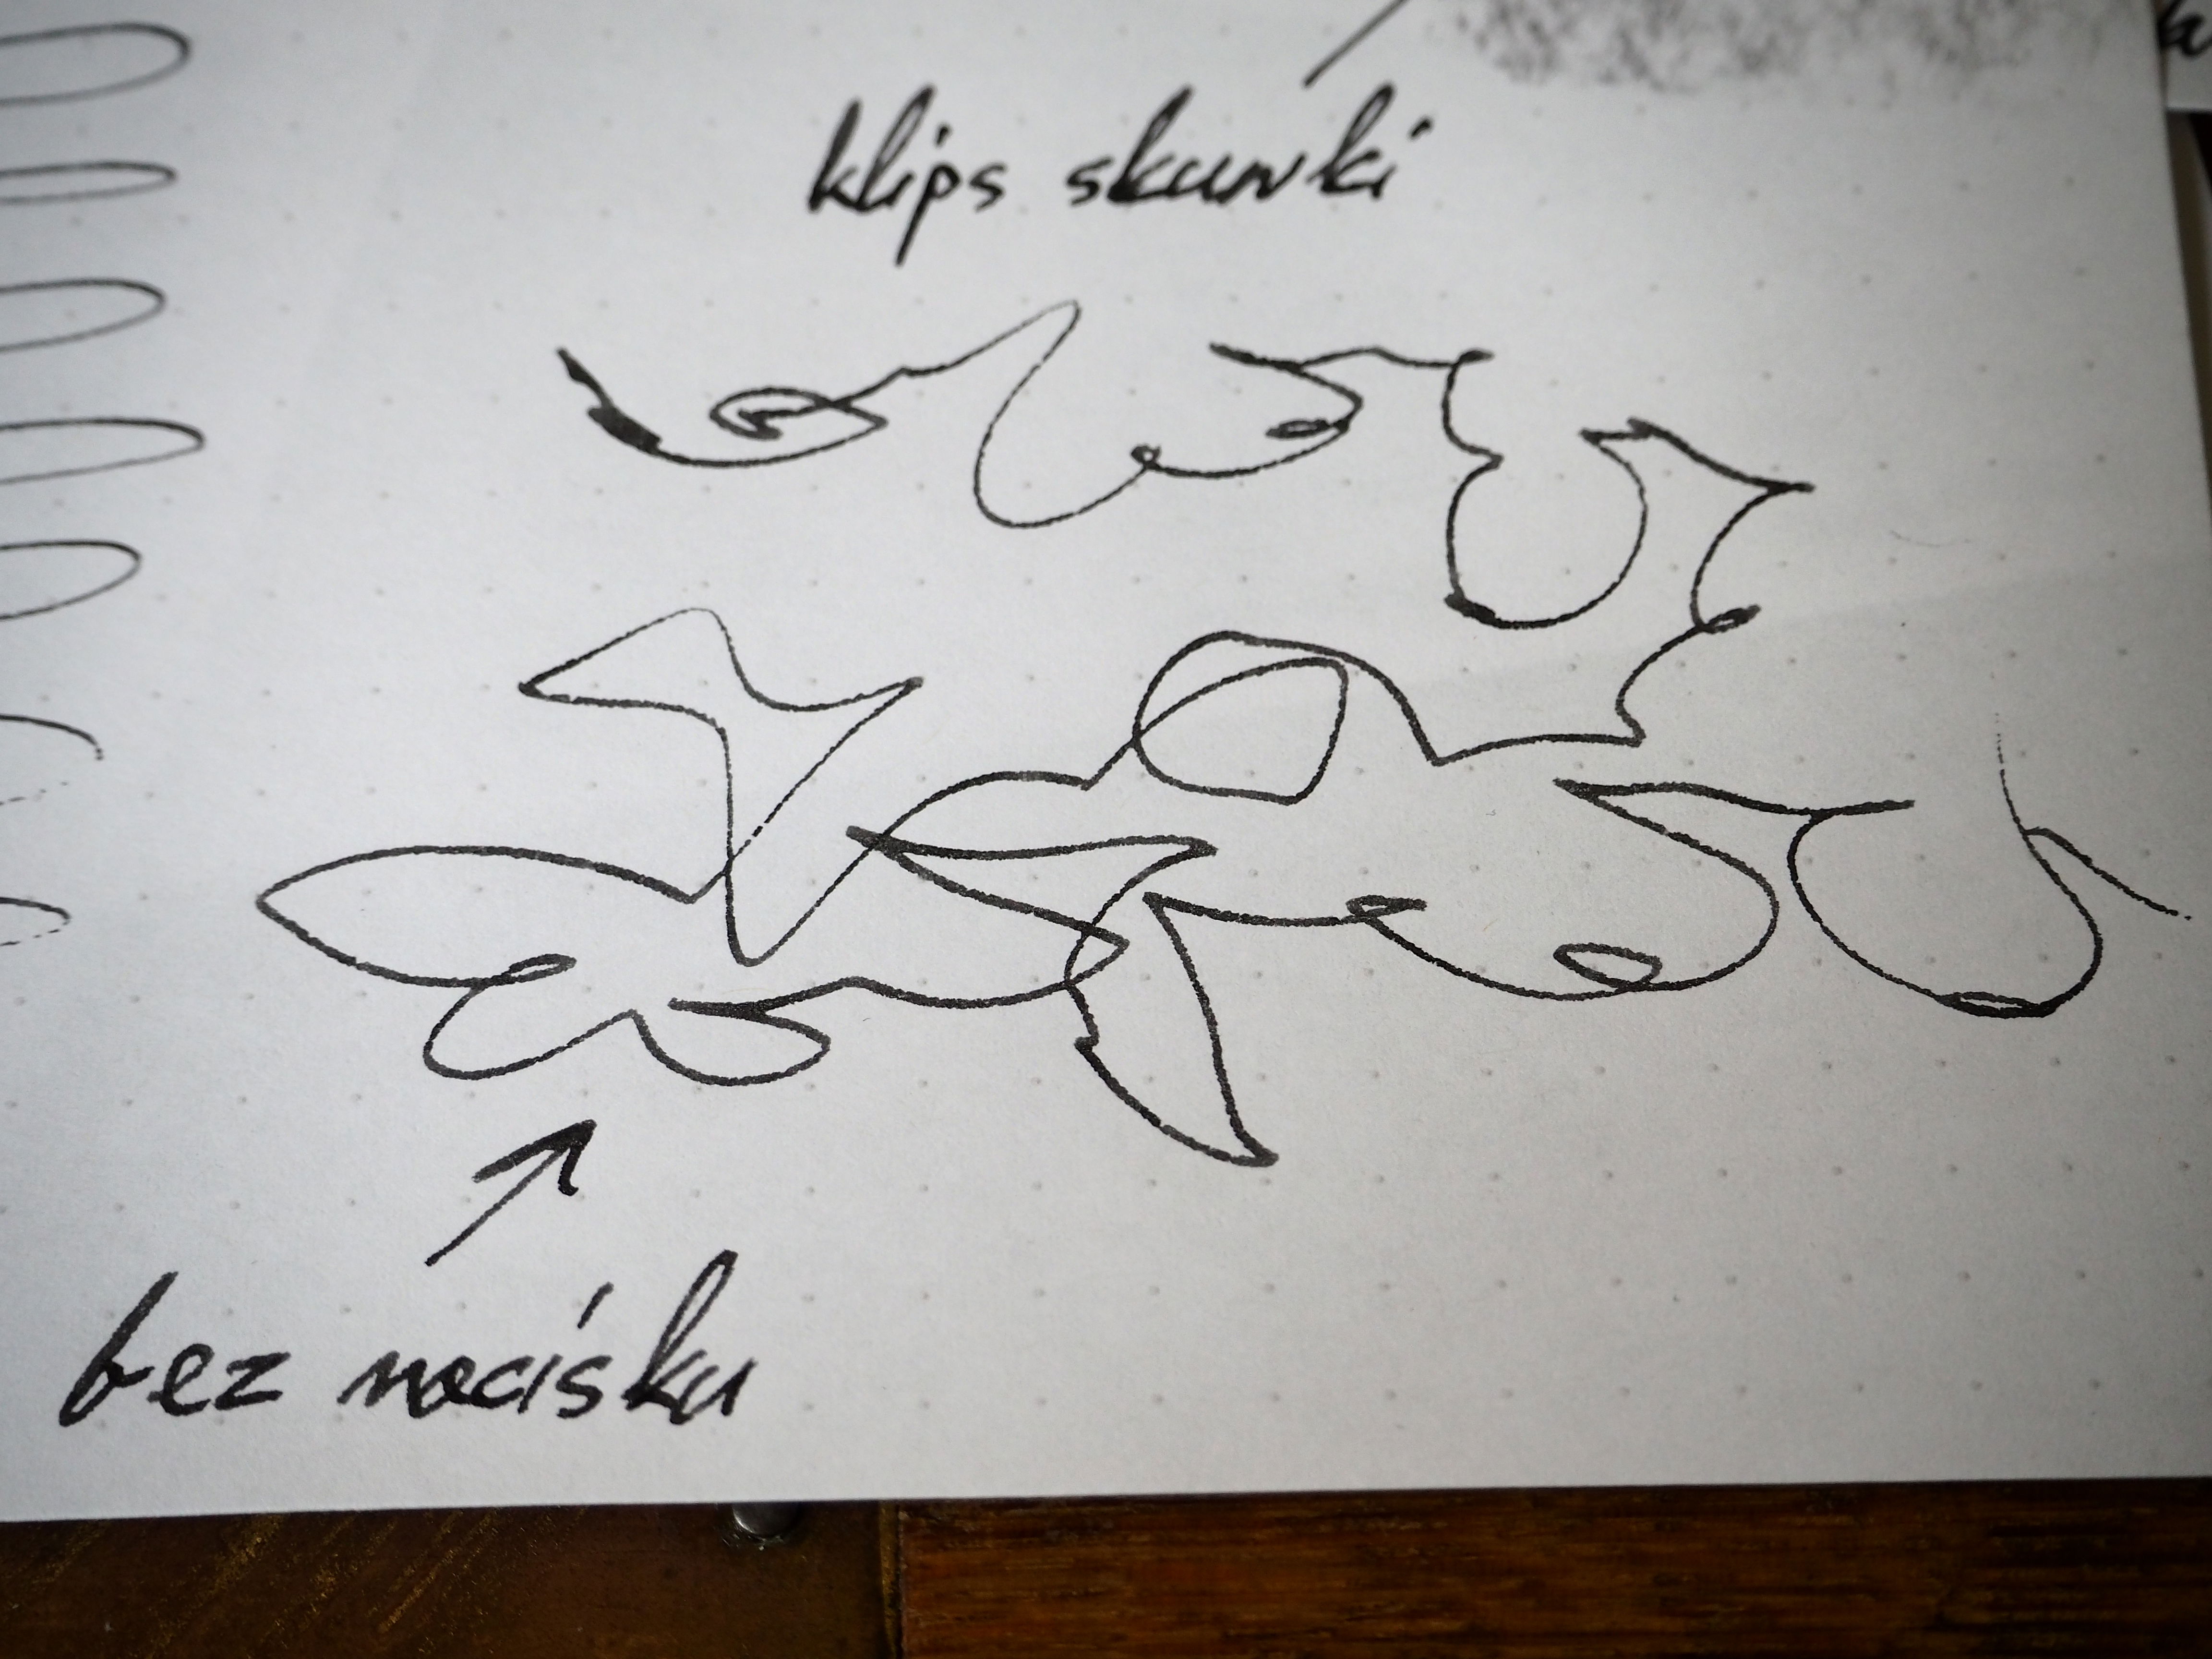 klips skuwki
bez nacisku